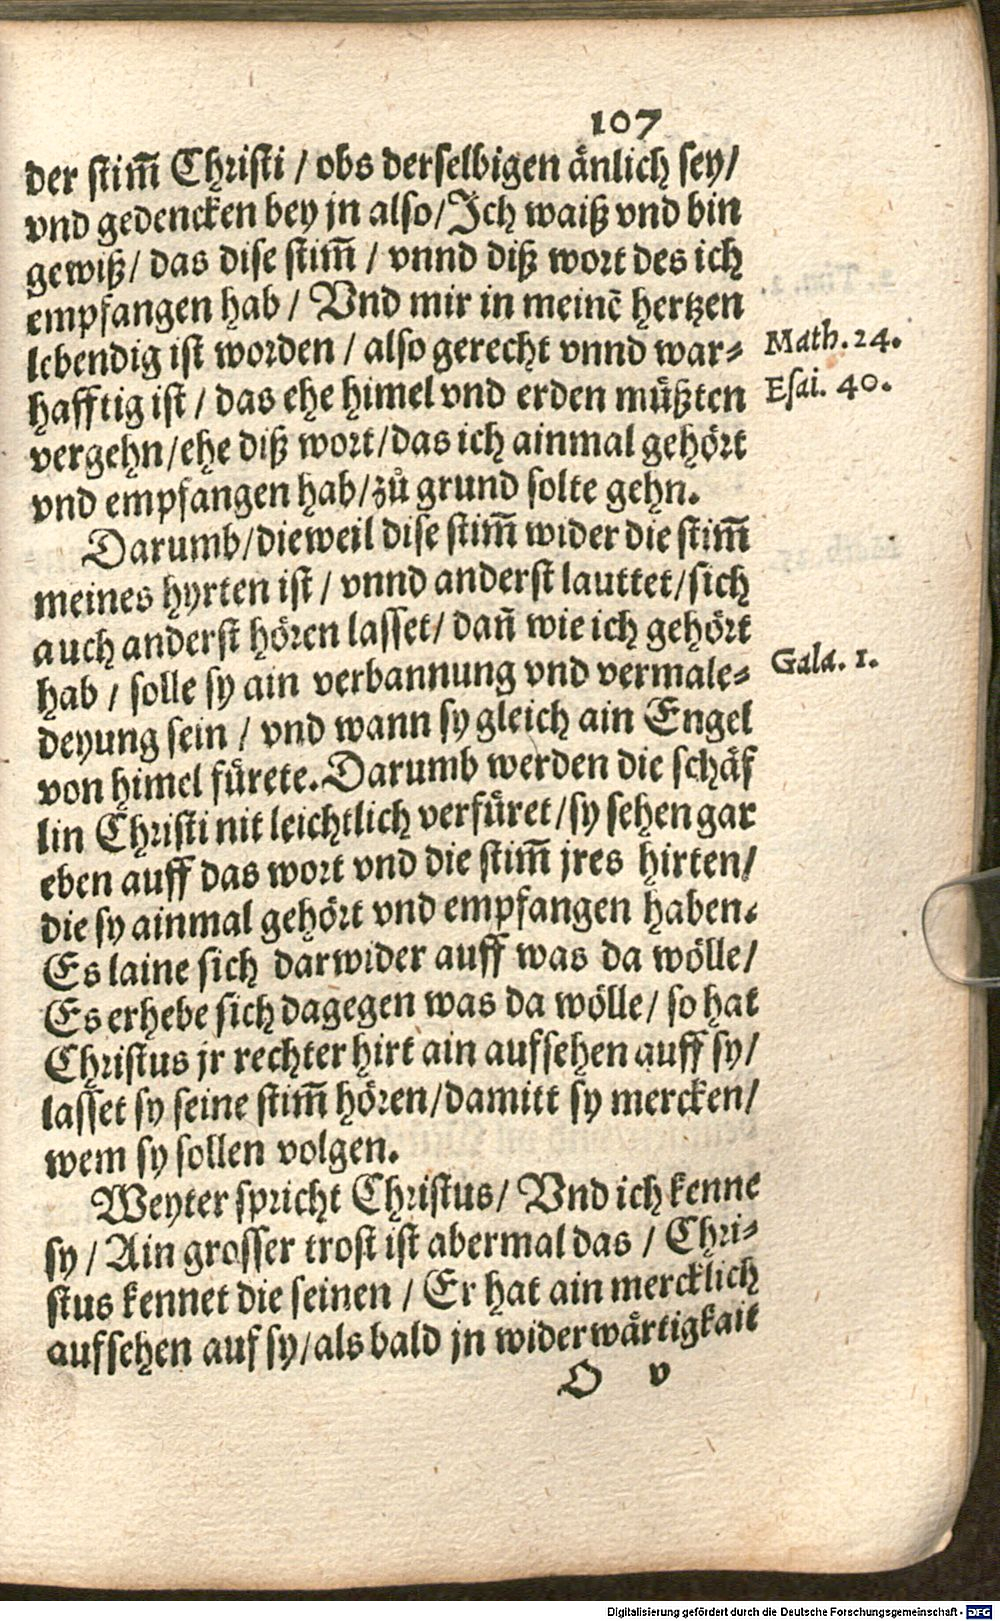 107
der stim̃ Christi / obs derselbigen änlich sey/
vnd gedencken bey jn also/ Ich waiß vnd bin
gewiß/ das dise stim̃ / vnnd diß wort des ich
empfangen hab / Vnd mir in meinẽ hertzen
lebendig ist worden / also gerecht vnnd war⸗
Math. 24.
hafftig ist / das ehe himel vnd erden müßten
Esai. 40.
vergehn/ehe diß wort/das ich ainmal gehört
vnd empfangen hab/zů grund solte gehn.
Darumb/dieweil dise stim̃ wider die stim̃
meines hyrten ist / vnnd anderst lauttet/sich
auch anderst hören lasset/ dañ wie ich gehört
hab / solle sy ain verbannung vnd vermale⸗
Gala. 1.
deyung sein / vnd wann sy gleich ain Engel
von himel fürete. Darumb werden die schäf
lin Christi nit leichtlich verfüret/sy sehen gar
eben auff das wort vnd die stim̃ jres hirten/
die sy ainmal gehört vnd empfangen haben.
Es laine sich darwider auff was da wölle/
Es erhebe sich dagegen was da wölle/ so hat
Christus jr rechter hirt ain aufsehen auff sy/
lasset sy seine stim̃ hören/damitt sy mercken/
wem sy sollen volgen.
Weyter spricht Christus/ Vnd ich kenne
sy / Ain grosser trost ist abermal das / Chri⸗
stus kennet die seinen / Er hat ain mercklich
aufsehen auf sy/als bald jn widerwärtigkait
O v
Digitalisierung gefördert durch die Deutsche Forschungsgemeinschaft - DFG